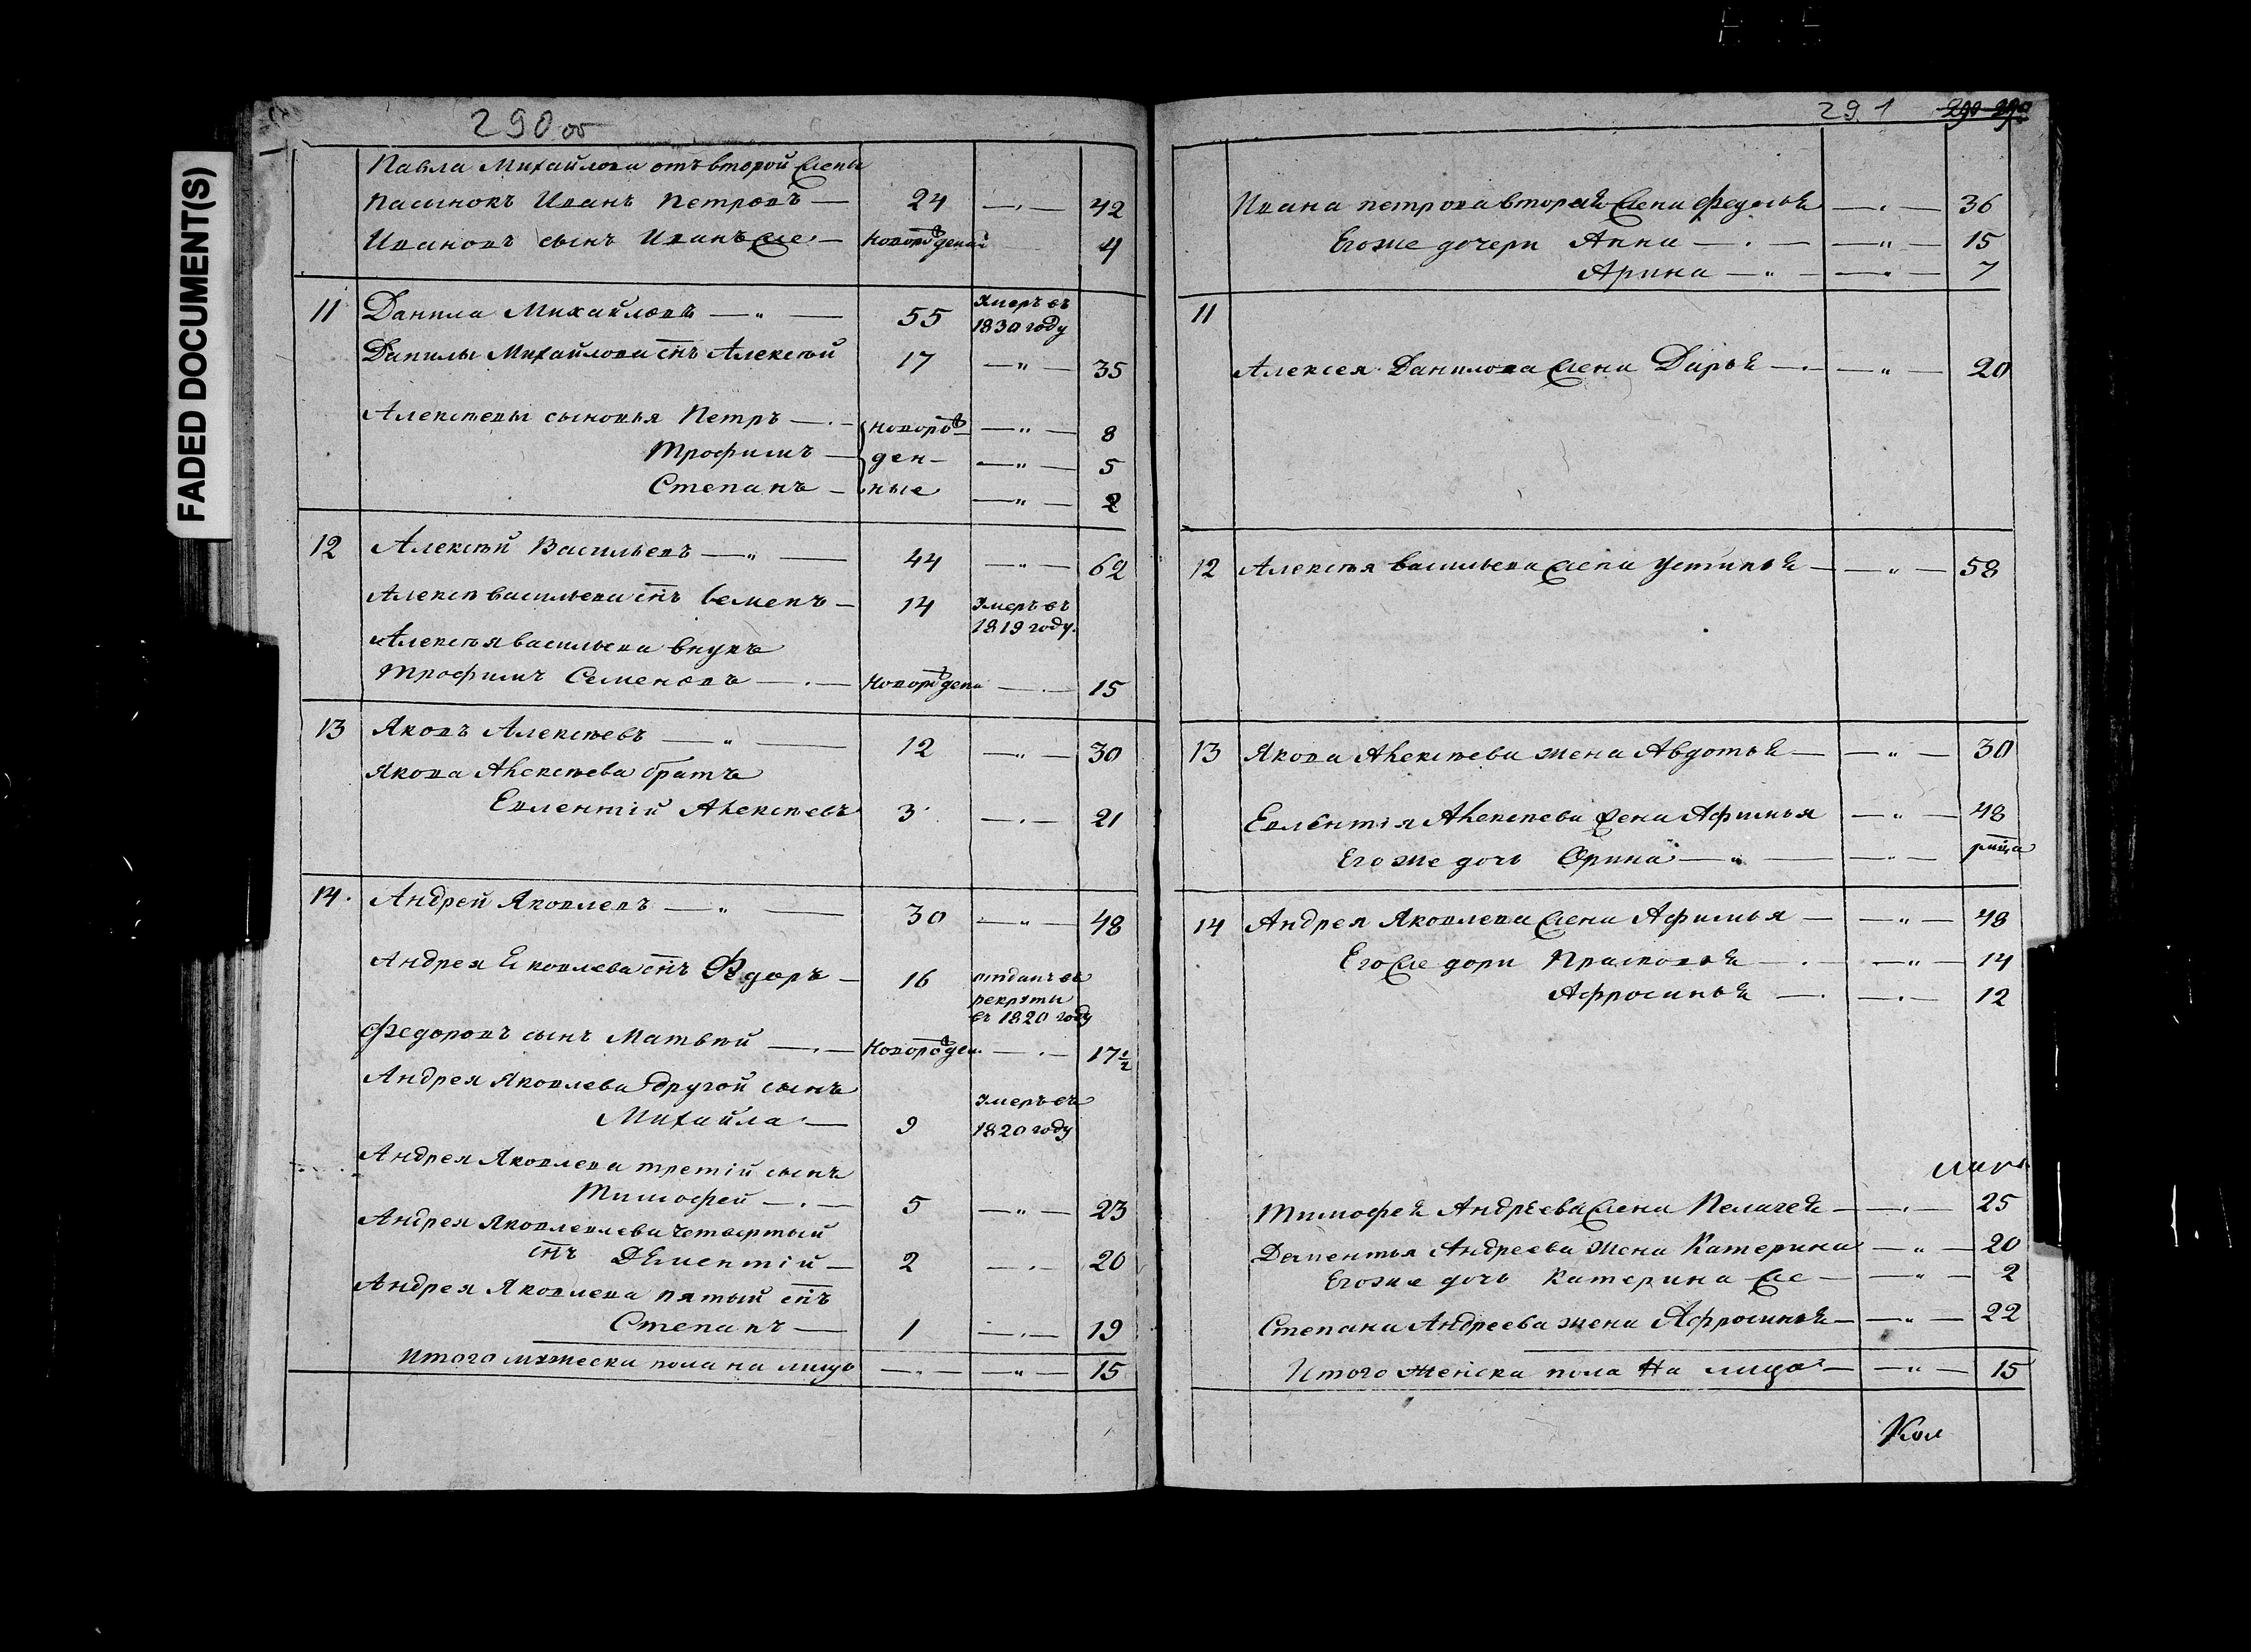 FADED DOCUMENT(S)
290 об
Павла Михайлова отъ второй жены
Пасынокъ Иванъ Петровъ — 24 — 42
Ивановъ сынъ Иванъ же — новорожденный 4
11 Данила Михайловъ — 55 Умеръ въ 1830 году
Данилы Михайлова снъ Алексѣй 17 — 35
Алексѣевы сыновья Петръ — новорож — 8
Трофимъ — ден — 5
Степанъ — ные — 2
12 Алексѣй Васильевъ — 44 — 62
Алексѣ васильева снъ Семенъ — 14 Умеръ въ 1819 году
Алексѣя васильева внукъ
Трофимъ Семеновъ — новорожден — 15
13 Яковъ Алексѣевъ — 12 — 30
Якова Алексѣева братъ
Евлентій Алексѣевъ 3 — 21
14 Андрей Яковлевъ — 30 — 48
Андрея Яковлева снъ Федоръ — 16 отданъ въ рекруты въ 1820 году
Федоровъ сынъ Матвѣй — новорожден — 17 1/2
Андрея Яковлева другой сынъ
Михайла — 9 Умеръ въ 1820 году
Андрея Яковлева третій сынъ
Тимофей — 5 — 23
Андрея Яковлевлева четвертый
снъ Дементій — 2 — 20
Андрея Яковлева пятый снъ
Степанъ — 1 — 19
Итого мужеска пола на лицо — — 15
291
Ивана петрова вторая жена Федосья — — 36
Его же дочери Анна — — 15
Арина — — 7
11
Алексея Данилова жена Дарья — — 20
12 Алексѣя васильева жена Устинья — — 58
13 Якова Алексѣева жена Авдотья — — 30
Евлентія Алексѣева жена Афимья — — 48
Его же дочь Орина — —
14 Андрея Яковлева жена Афимья — — 48
Его же дочи Прасковья — — 14
Афросинья — — 12
Тимофея Андрѣева жена Пелагея — — 25
Дементья Андреева жена Катерина — — 20
Его же дочь Катерина же — — 2
Степана Андреева жена Афросинья — — 22
Итого женска пола на лицо — — 15
Кол